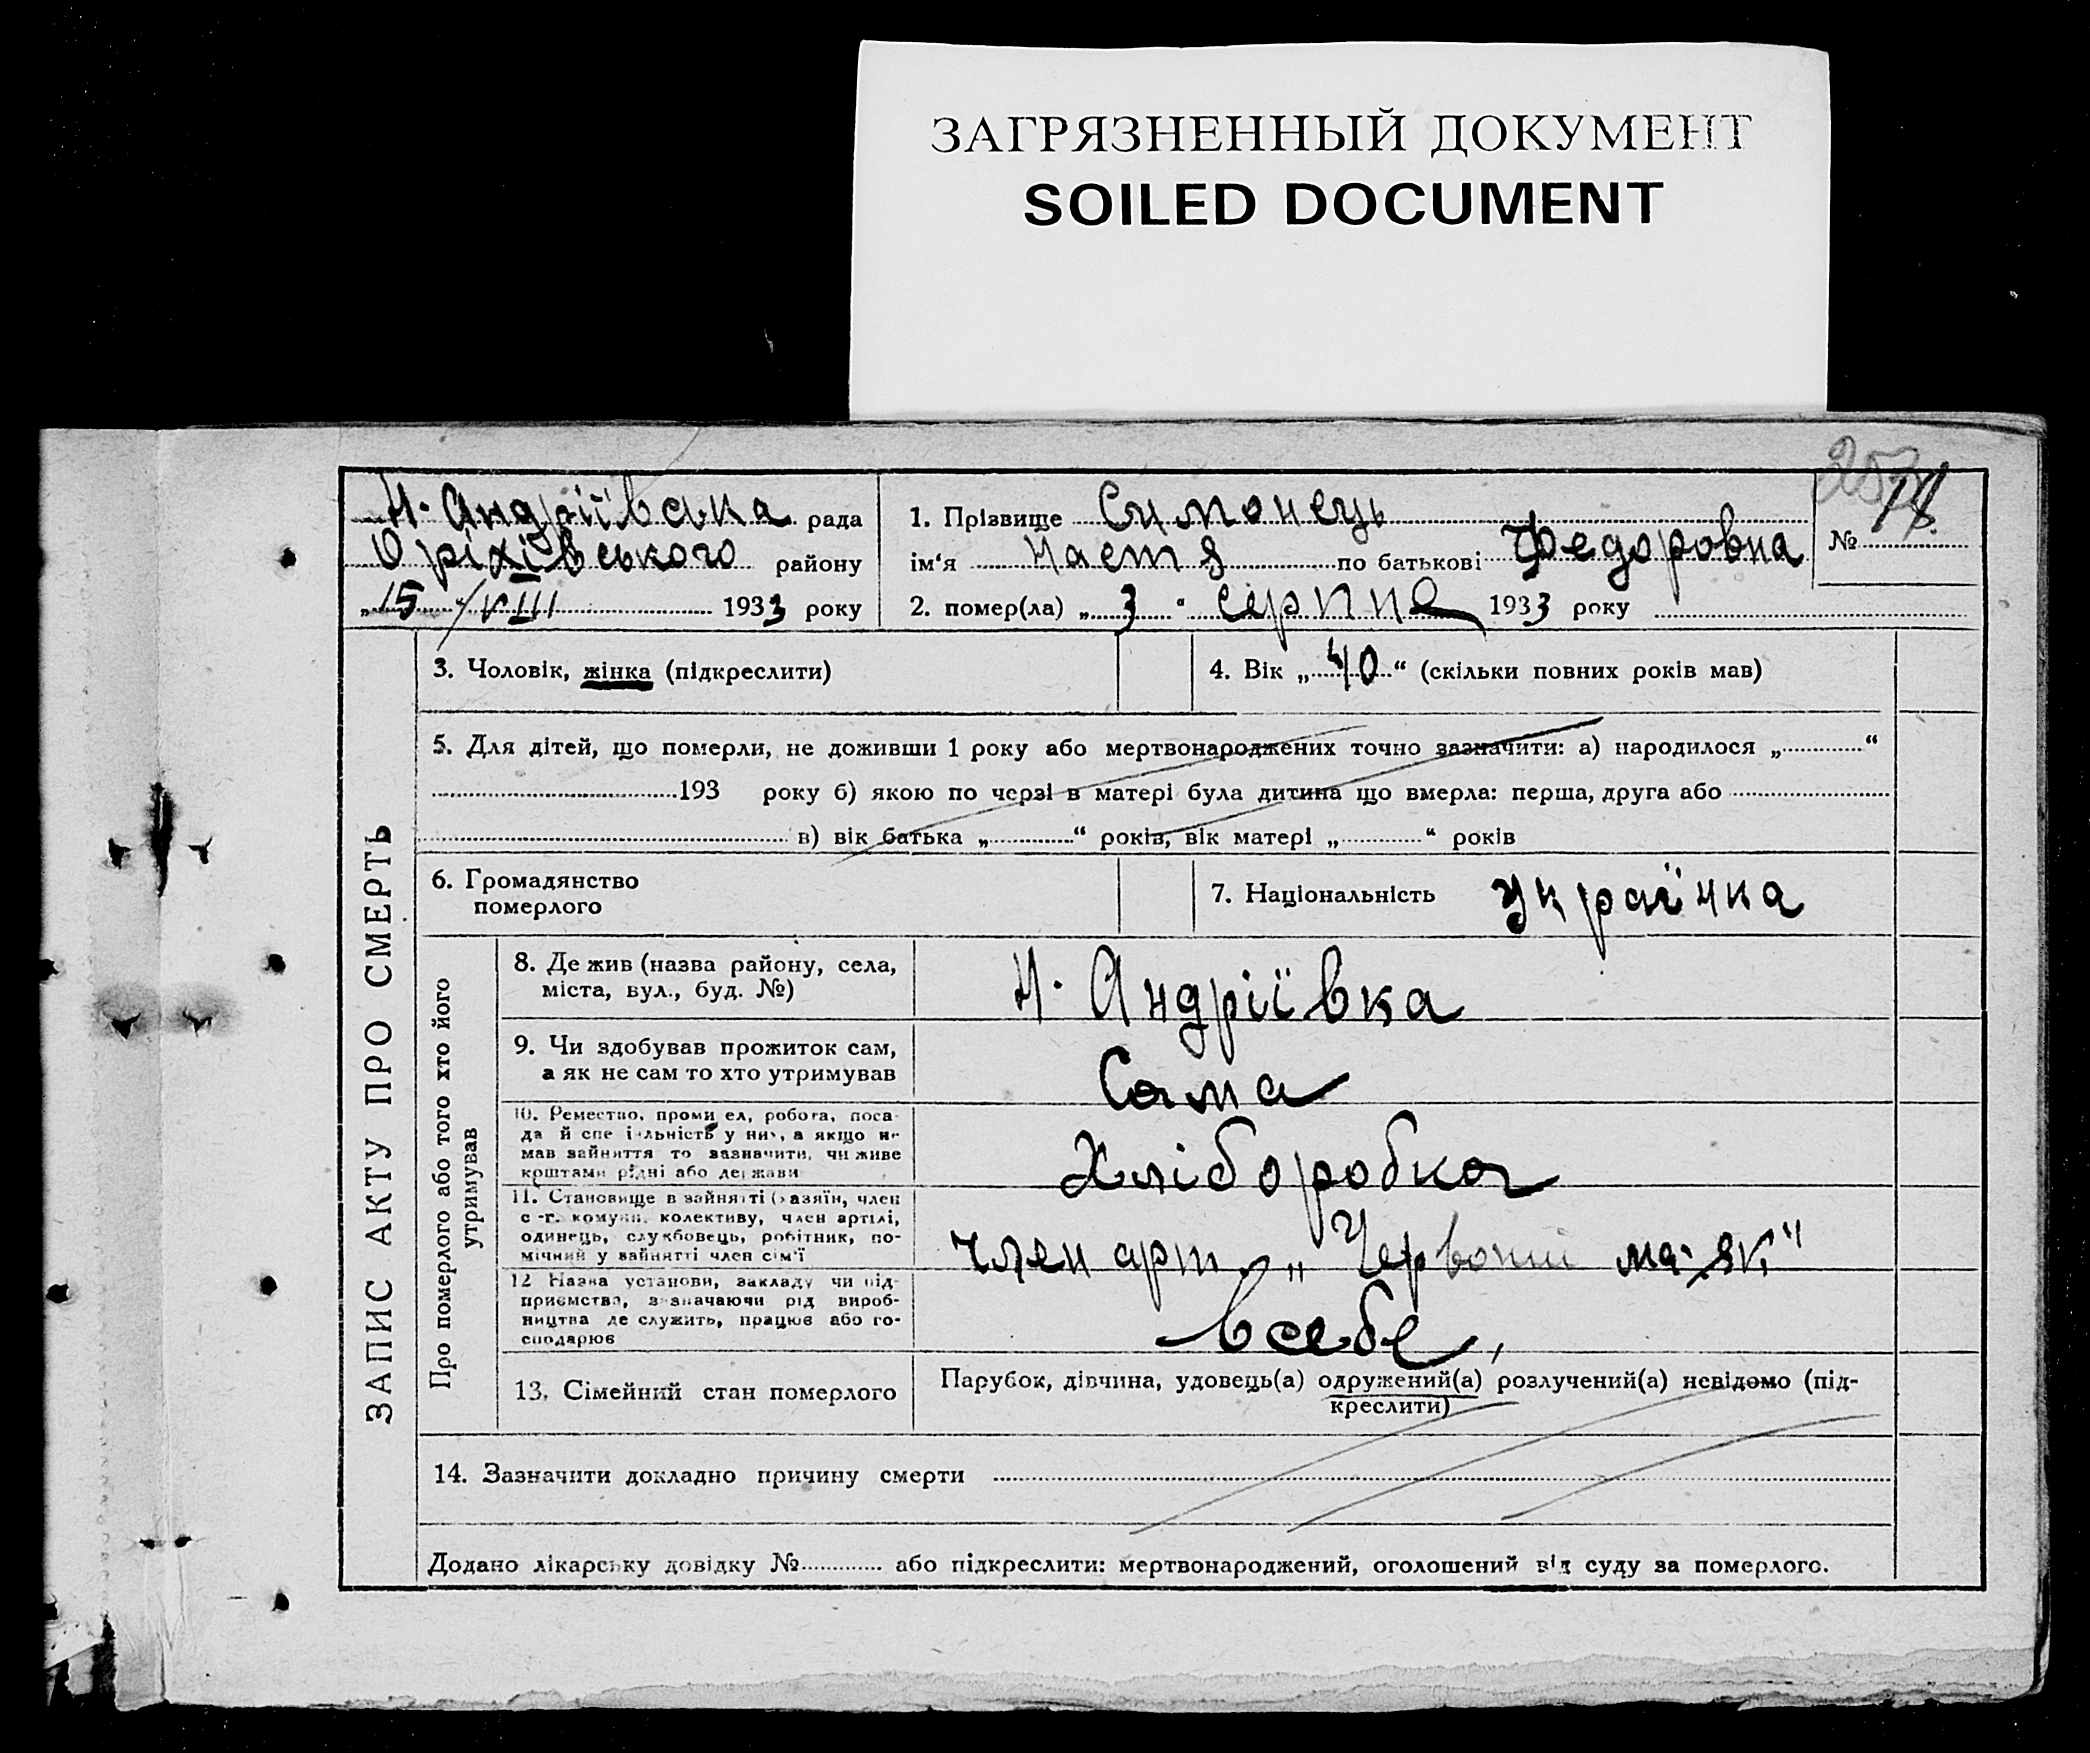 ЗАГРЯЗНЕННЫЙ ДОКУМЕНТ
SOILED DOCUMENT
Н. Андріївська рада
Оріхівського району
„15“/VIII 1933 року
1. Прізвище Симонець
ім‘я Настя по батькові Федоровна
2. помер(ла) „3“ серпня 1933 року
№ 18
ЗАПИС АКТУ ПРО СМЕРТЬ
3. Чоловік, жінка (підкреслити)
4. Вік „40“ (скільки повних років мав)
5. Для дітей, що померли, не доживши 1 року або мертвонароджених точно зазначити: а) народилося „ “
193 року б) якою по черзі в матері була дитина що вмерла: перша, друга або
в) вік батька „ “ років, вік матері „ “ років
6. Громадянство
померлого
7. Національність Українка
Про померлого або того хто його
утримував
8. Де жив (назва району, села,
міста, вул., буд. №)
Н. Андріївка
9. Чи здобував прожиток сам,
а як не сам то хто утримував
Сама
10. Ремество, промисел, робота, поса-
да й спеціальність у ній, а якщо не
мав зайняття то зазначити, чи живе
коштами рідні або держави
Хліборобка
11. Становище в зайнятті (хазяїн, член
с.-г. комуни, колективу, член артілі,
одинець, службовець, робітник, по-
мічний у зайнятті член сім'ї
член арт. „Червоний маяк"
12 Назва установи, закладу чи під-
приємства, зазначаючи рід вироб-
ництва де служить, працює або го-
сподарює
в себе,
13. Сімейний стан померлого
Парубок, дівчина, удовець(а) одружений(а) розлучений(а) невідомо (під-
креслити)
14. Зазначити докладно причину смерти
Додано лікарську довідку № або підкреслити: мертвонароджений, оголошений від суду за померлого.